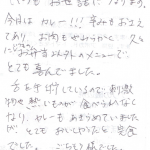 いつも お世話に なります。
今日は カレー!!! 辛みもおさえ
てあり お肉もやわらかく 久々
にお弁当以外のメニューで
とても 喜んでました。
舌を手術しているので、刺激
物や熱いものが食べられなく
なり、カレーも あきらめていました
が とても おいしかったと 完食
でした。 ごちそう様でした。